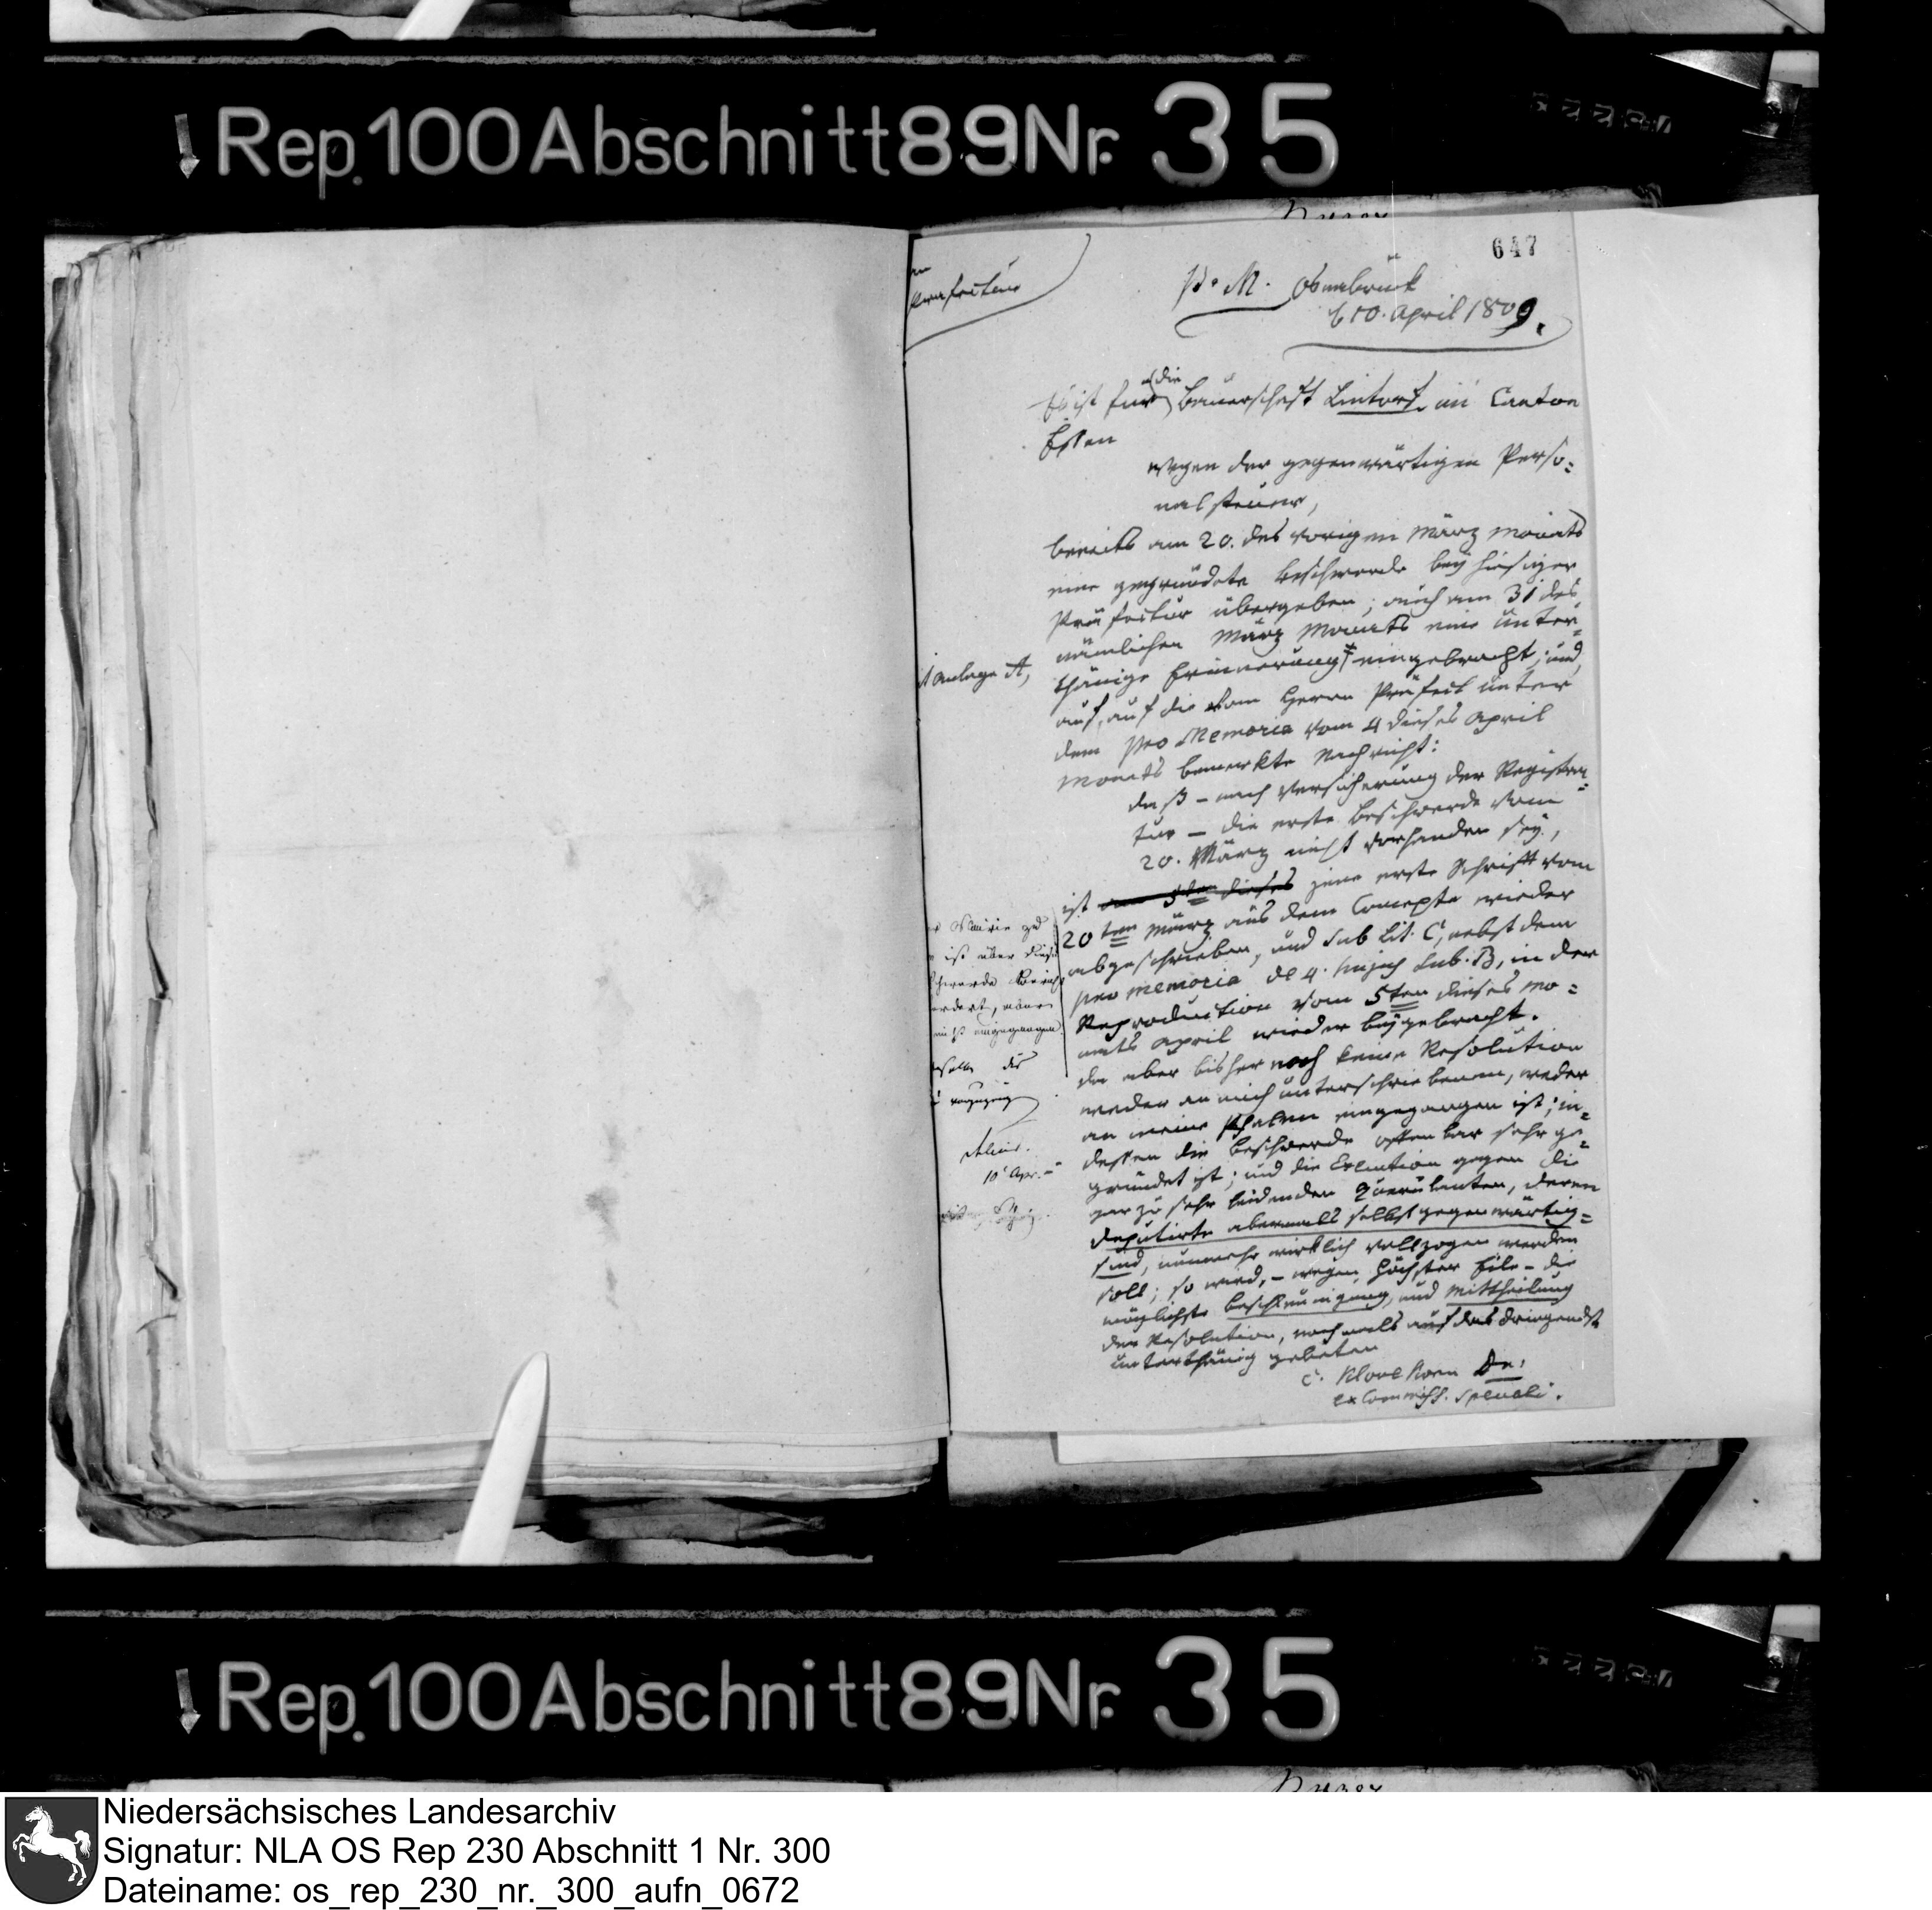 Rep. 100 Abschnitt 89 Nr. 35
647
Praefectur
P. M. Osnabrück
d 10. April 1809.
Es ist für die Bauerschaft Lintorf, im Canton
Essen
wegen der gegenwärtigen Perso=
nalsteuer,
bereits am 20. des vorigen März Monats
eine gegründete Beschwerde bey hiesiger
Präfectur übergeben; auch am 31 des
nämlichen März Monats eine unter=
thänige Erinnerung eingebracht; und,
auf die vom Herrn Präfect unter
dem Pro Memoria vom 4 dieses April
Monats bemerkte Nachricht:
daß – nach Versicherung der Registra=
tur – die erste Beschwerde vom
20. März nicht vorhanden sey,
ist am 5ten dieses jene erste Schrift vom
20ten März aus dem Concepte wieder
abgeschrieben, und sub Lit. C, nebst dem
pro memoria de 4. hujus sub. B, in der
Reproduction vom 5ten dieses Mo=
nats April wieder beygebracht.
Da aber bisher noch keine Resolution
weder an mich unterschriebenen, weder
an meine eingegangen ist; in=
dessen die Beschwerde offenbar sehr ge=
gründet ist; und die Execution gegen die
gar zu sehr leidenden Querulanten, deren
Deputirte abermals selbst gegenwärtig
sind, nunmehr wirklich vollzogen werden
soll; so wird, – wegen höchster Eile – die
möglichste Beschleunigung, und Mittheilung
der Resolution, nochmals auf das dringendste
unterthänig gebeten
C. Klovekorn Dr.
ex Commiss. speciali.
Anlage A,
Mairie zu
ist über diese
eingegangen
10 Apr.
Rep. 100 Abschnitt 89 Nr. 35
Niedersächsisches Landesarchiv
Signatur: NLA OS Rep 230 Abschnitt 1 Nr. 300
Dateiname: os_rep_230_nr._300_aufn_0672